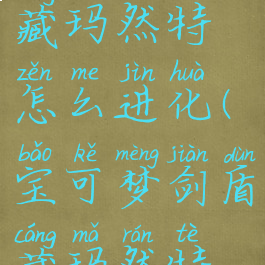 藏玛然特
zěn me jìn huà
怎么进化(
bǎo kě mèng jiàn dùn
宝可梦剑盾
cáng mǎ rán tè
藏玛然特